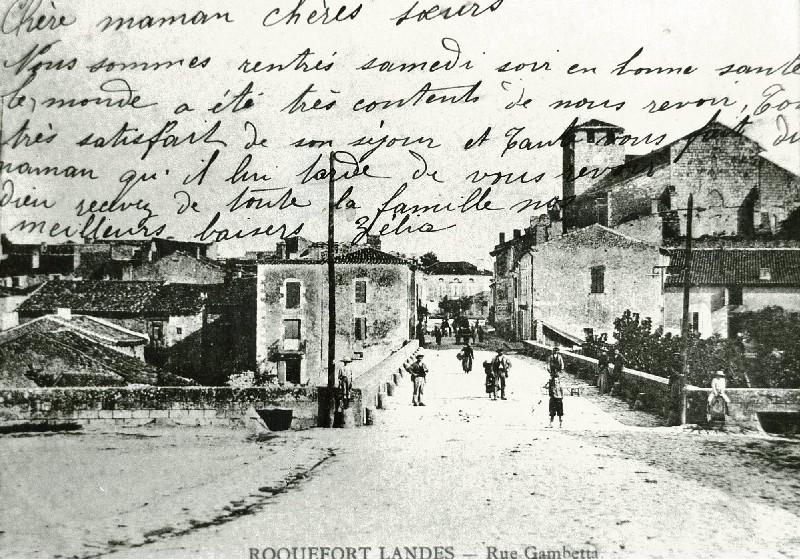 Chère maman chères sœurs
Nous sommes rentrés samedi soir en bonne santé
le monde a été très contents de nous revoir, Tou
très satisfait de son séjour et Tante vous fait du
maman qu'il lui tarde de vous revoir
Dieu recevez de toute la famille nos
meilleurs baisers Zélia
ROQUEFORT LANDES — Rue Gambetta